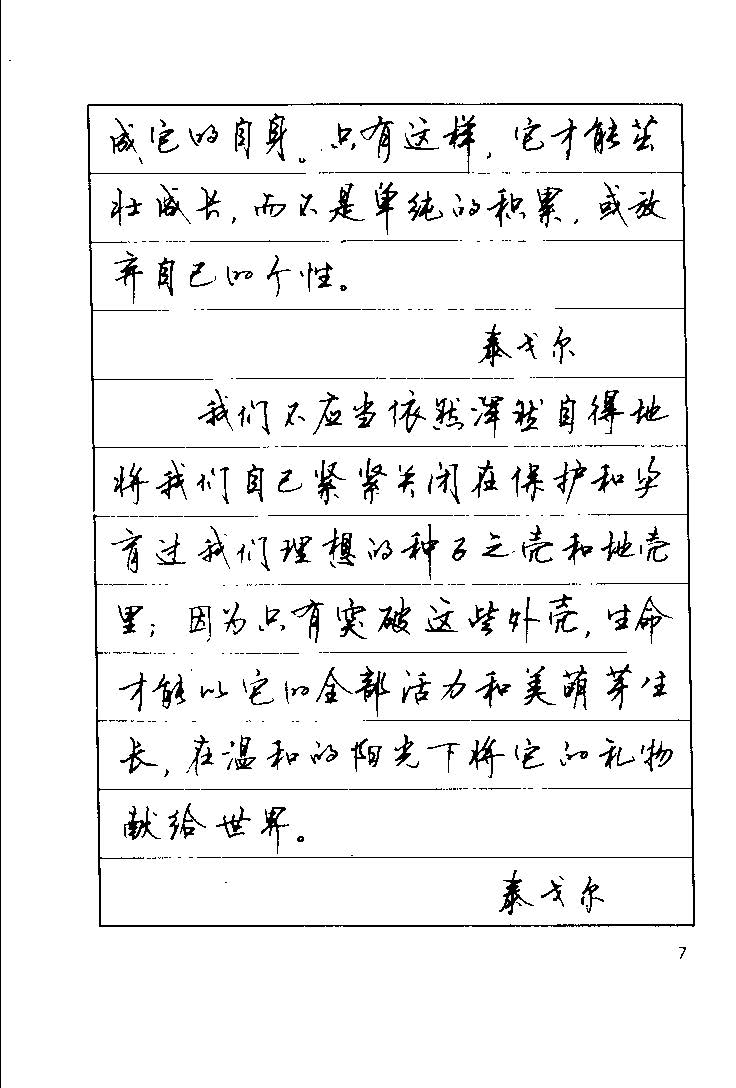 成它的自身。只有这样，它才能茁
壮成长，而不是单纯的积累，或放
弃自己的个性。
泰戈尔
我们不应当依然浑然自得地
将我们自己紧紧关闭在保护和孕
育过我们理想的种子之壳和地壳
里；因为只有突破这些外壳，生命
才能以它的全部活力和美萌芽生
长，在温和的阳光下将它的礼物
献给世界。
泰戈尔
7